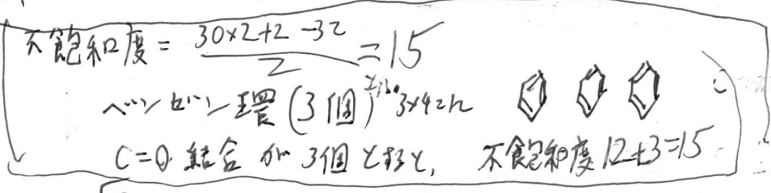 不飽和度 = (30×2+2-32)/2 = 15
ベンゼン環 (3個) 3×4=12
C=O 結合が3個とすると、不飽和度 12+3=15